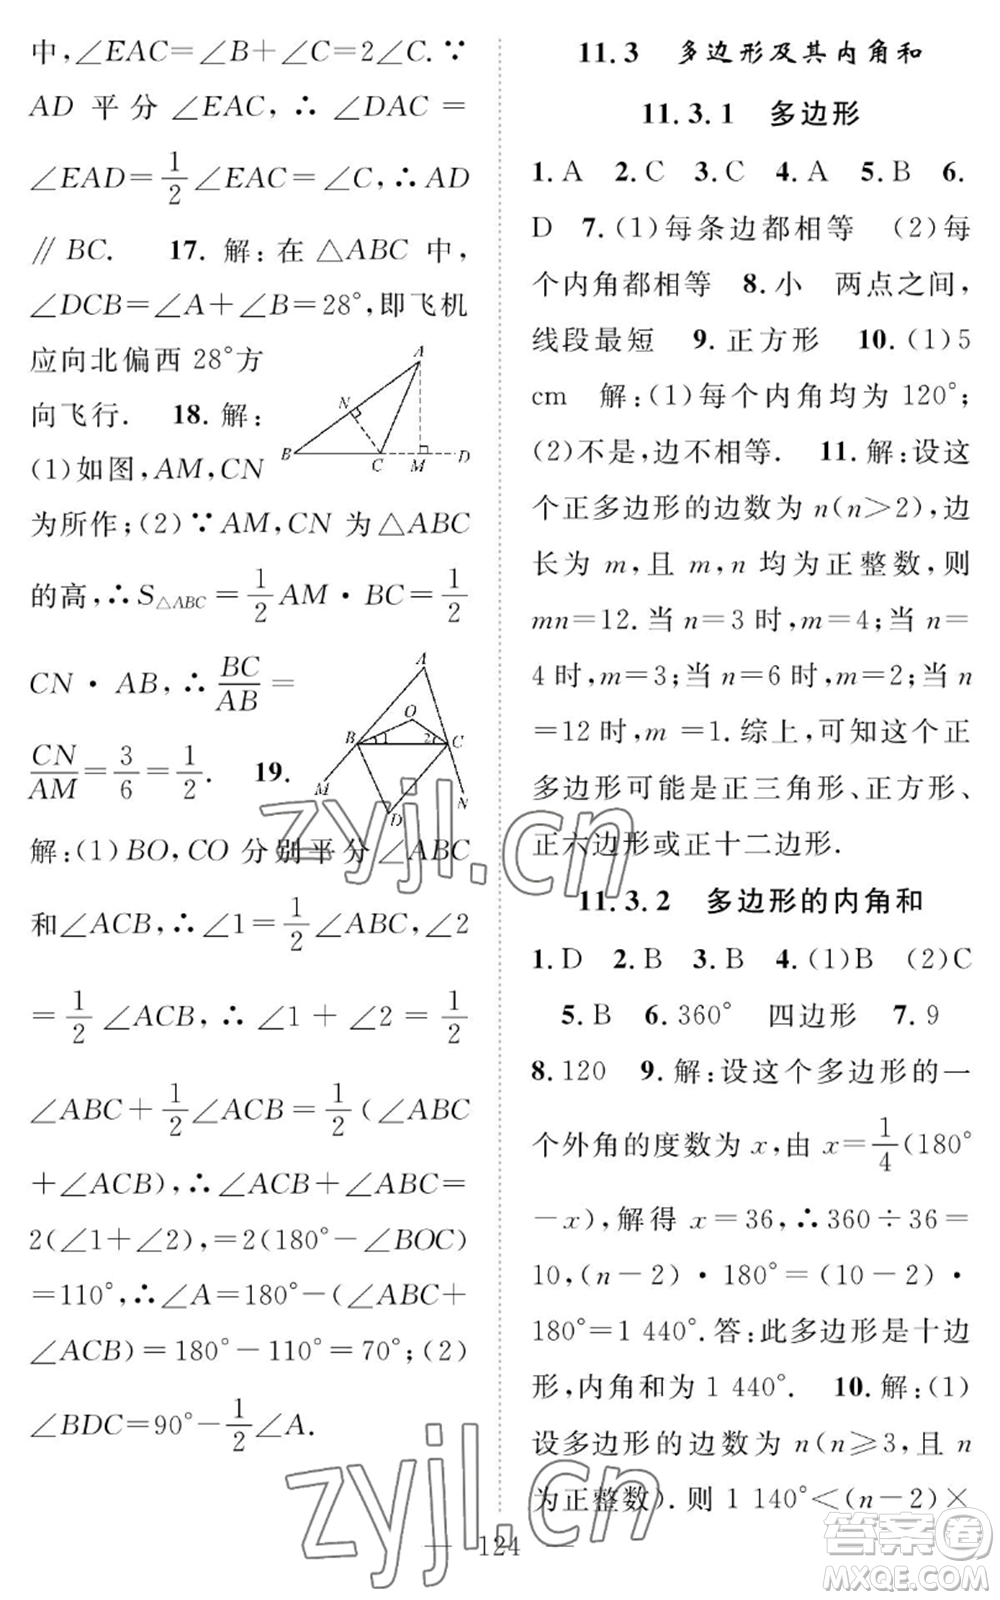 中,∠EAC=∠B+∠C=2∠C.∵
AD 平分∠EAC,∴∠DAC=
∠EAD=1/2∠EAC=∠C,∴AD
∥BC. 17. 解:在△ABC 中,
∠DCB=∠A+∠B=28°,即飞机
应向北偏西 28°方
向飞行. 18. 解:
(1)如图,AM,CN
为所作;(2)∵AM,CN 为△ABC
的高,∴S△ABC=1/2AM·BC=1/2
CN·AB,∴BC/AB=
CN/AM=3/6=1/2. 19.
解:(1)BO,CO 分别平分∠ABC
和∠ACB,∴∠1=1/2∠ABC,∠2
=1/2∠ACB,∴∠1+∠2=1/2
∠ABC+1/2∠ACB=1/2(∠ABC
+∠ACB),∴∠ACB+∠ABC=
2(∠1+∠2),=2(180°-∠BOC)
=110°,∴∠A=180°-(∠ABC+
∠ACB)=180°-110°=70°;(2)
∠BDC=90°-1/2∠A.
A
N
B
C
M
D
A
O
B
1
2
C
M
D
N
11.3 多边形及其内角和
11.3.1 多边形
1. A 2. C 3. C 4. A 5. B 6.
D 7. (1)每条边都相等 (2)每
个内角都相等 8. 小 两点之间,
线段最短 9. 正方形 10. (1)5
cm 解:(1)每个内角均为 120°;
(2)不是,边不相等. 11. 解:设这
个正多边形的边数为 n(n>2),边
长为 m,且 m,n 均为正整数,则
mn=12.当 n=3 时,m=4;当 n=
4 时,m=3;当 n=6 时,m=2;当 n
=12 时,m=1.综上,可知这个正
多边形可能是正三角形、正方形、
正六边形或正十二边形.
11.3.2 多边形的内角和
1. D 2. B 3. B 4. (1)B (2)C
5. B 6. 360° 四边形 7. 9
8. 120 9. 解:设这个多边形的一
个外角的度数为 x,由 x=1/4(180°
-x),解得 x=36,∴360÷36=
10,(n-2)·180°=(10-2)·
180°=1 440°.答:此多边形是十边
形,内角和为 1 440°. 10. 解:(1)
设多边形的边数为 n(n≥3,且 n
为正整数).则 1 140°<(n-2)×
124
zyjl.cn
zyjl.cn
答案卷
MXQE.COM